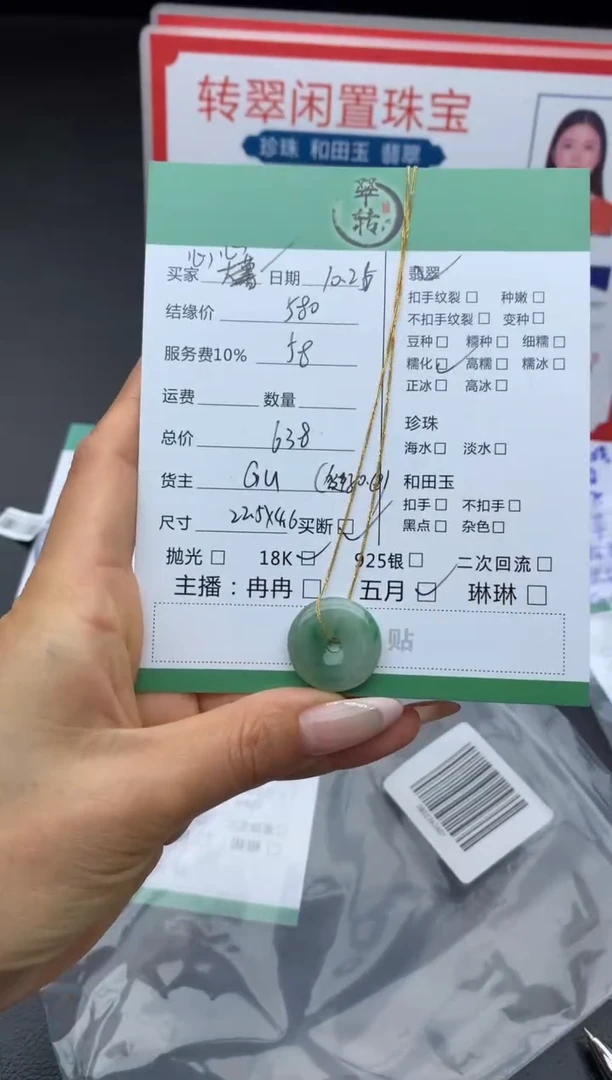 转翠闲置珠宝
珍珠 和田玉 翡翠
翠转
买家 心心 日期 10.25
结缘价 580
服务费10% 58
运费 数量
总价 638
货主 GU
尺寸 22.5X4.6 买断☑
翡翠
扣手纹裂□ 种嫩□
不扣手纹裂□ 变种□
豆种□ 糯种□ 细糯□
糯化☑ 高糯□ 糯冰□
正冰□ 高冰□
珍珠
海水□ 淡水□
和田玉
扣手□ 不扣手□
黑点□ 杂色□
抛光□ 18K☑ 925银□ 二次回流□
主播：冉冉□ 五月☑ 琳琳□
贴